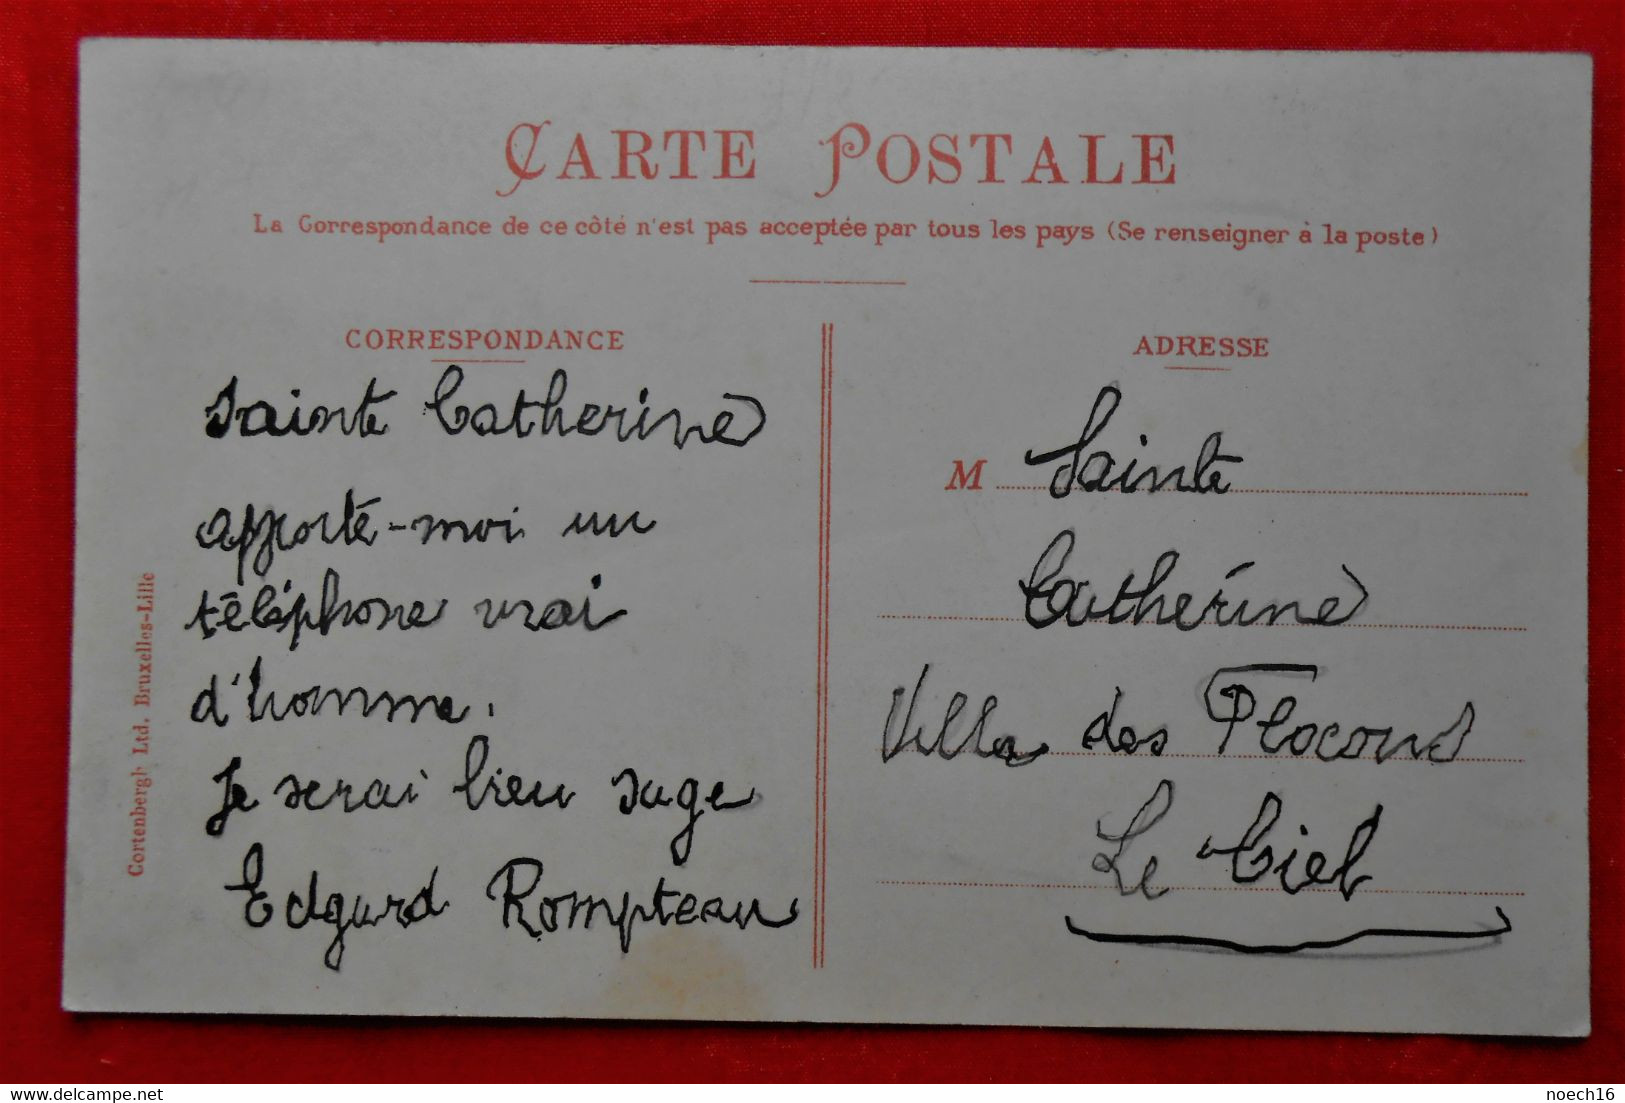 CARTE POSTALE
La Correspondance de ce côté n'est pas acceptée par tous les pays (Se renseigner à la poste)
CORRESPONDANCE
Sainte Catherine
apporte-moi un
téléphone vrai
d'homme.
Je serai bien sage
Edgard Rompteau
ADRESSE
M Sainte
Catherine
Villa des Flocons
Le Ciel
Cortenbergh Ltd. Bruxelles-Lille
www.delcampe.net
noech16